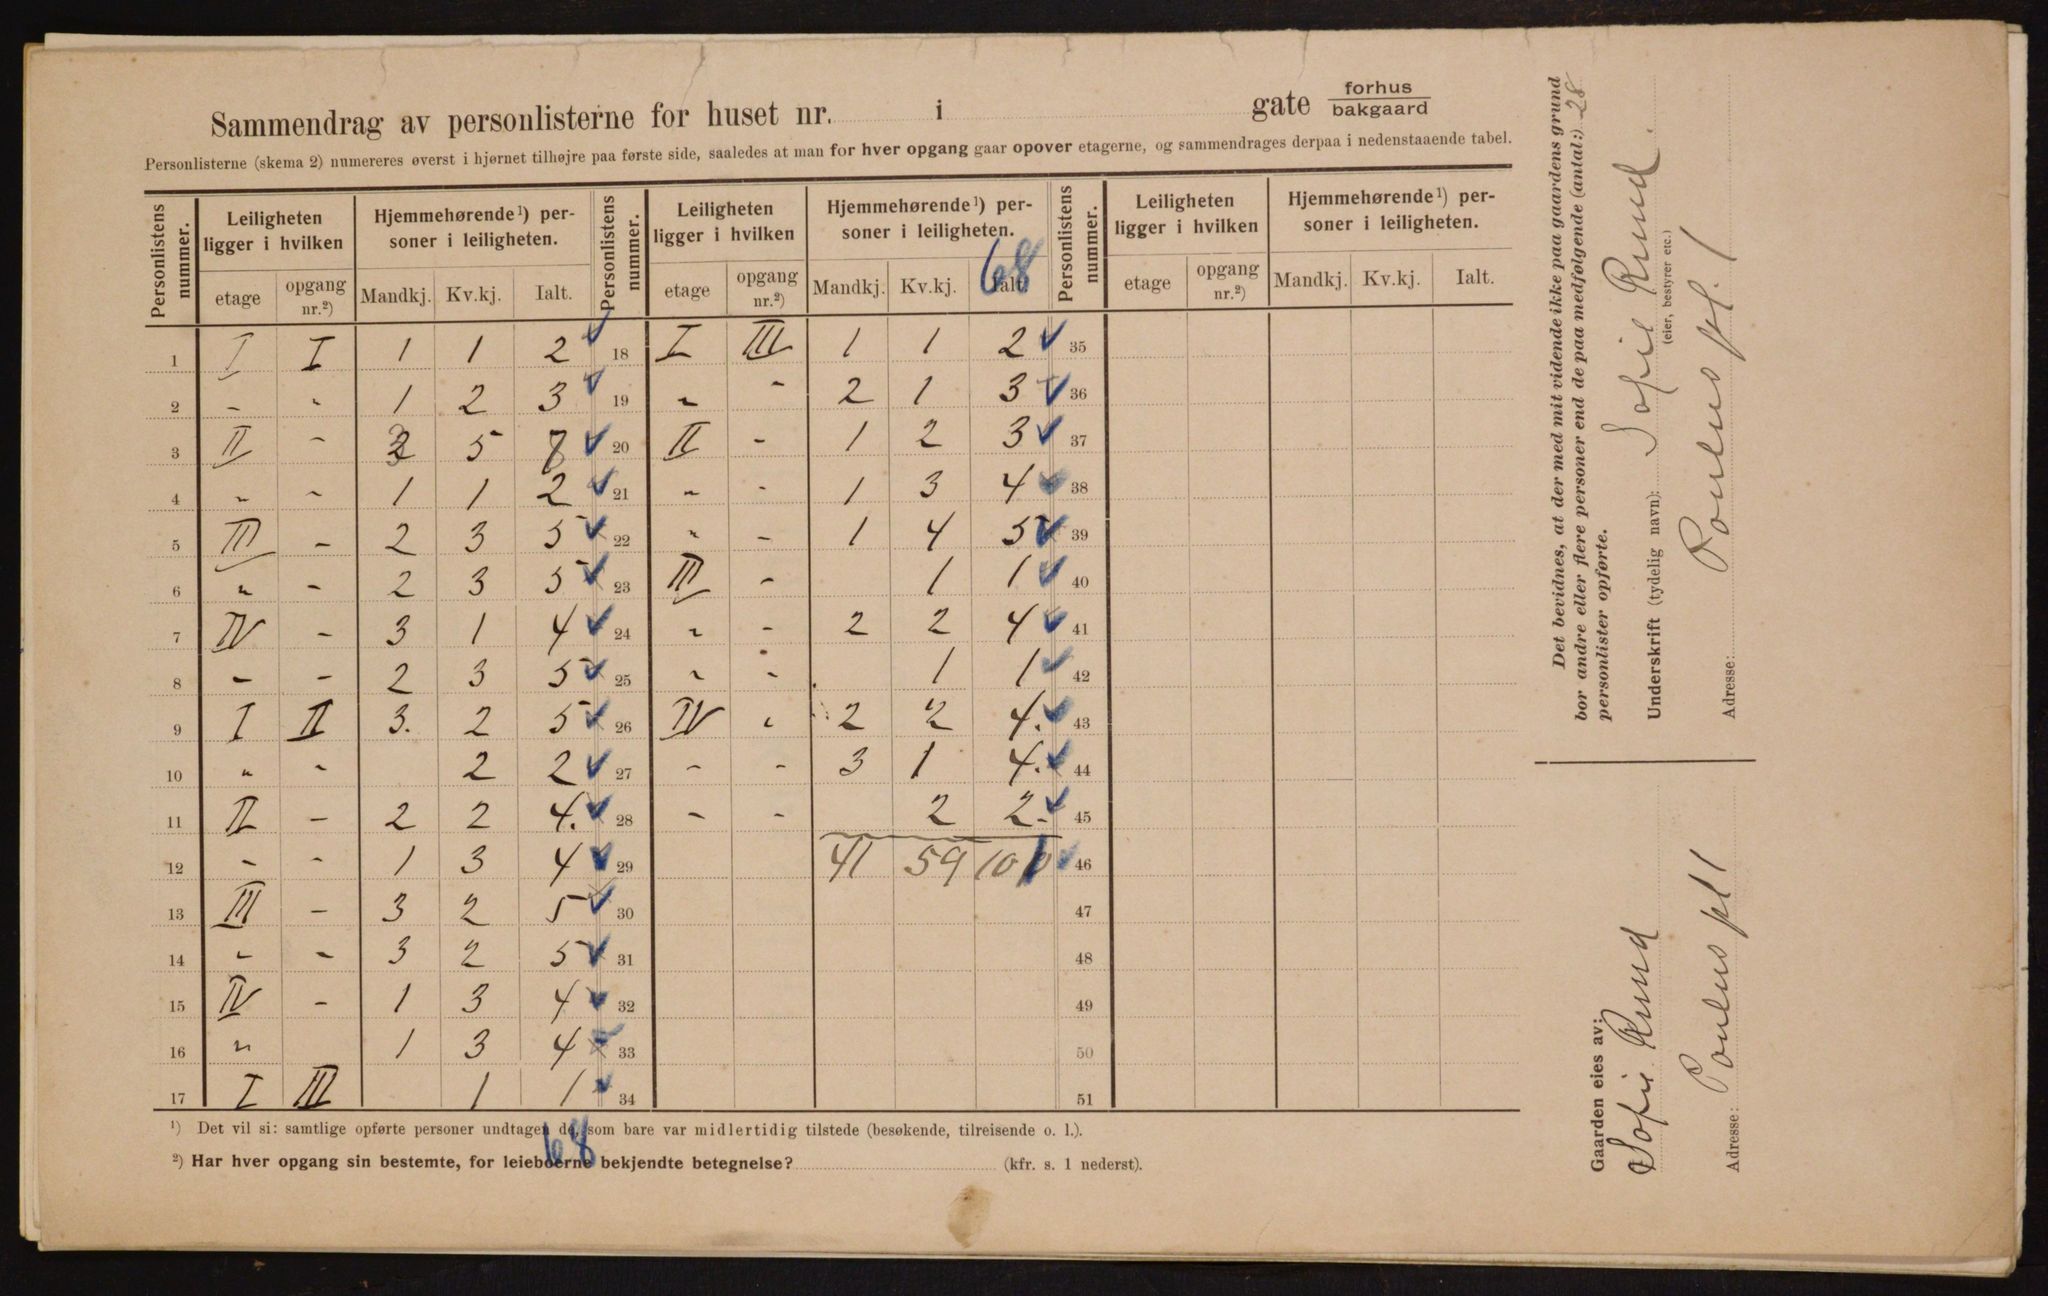 Sammendrag av personlisterne for huset nr. i gate forhus bakgaard
Personlisterne (skema 2) numereres øverst i hjørnet tilhøjre paa første side, saaledes at man for hver opgang gaar opover etagerne, og sammendrages derpaa i nedenstaaende tabel.
Personlistens nummer. Leiligheten ligger i hvilken Hjemmehørende ¹) personer i leiligheten. Personlistens nummer. Leiligheten ligger i hvilken Hjemmehørende ¹) personer i leiligheten. Personlistens nummer. Leiligheten ligger i hvilken Hjemmehørende ¹) personer i leiligheten.
68
etage opgang nr.²) Mandkj. Kv.kj. Ialt. etage opgang nr.²) Mandkj. Kv.kj. Ialt. etage opgang nr.²) Mandkj. Kv.kj. Ialt.
1 I I 1 1 2 18 I III 1 1 2 35
2 „ „ 1 2 3 19 „ „ 2 1 3 36
3 II – 5 20 II – 1 2 3 37
4 „ „ 1 1 2 21 „ „ 1 3 4 38
5 III – 2 3 5 22 „ – 1 4 5 39
6 „ – 2 3 5 23 III – 1 1 40
7 IV – 3 1 4 24 „ – 2 2 4 41
8 – – 2 3 5 25 „ – 1 1 42
9 I II 3. 2 5 26 IV „ 2 2 4. 43
10 „ „ 2 2 27 – – 3 1 4. 44
11 II – 2 2 4. 28 – – 2 2. 45
12 – „ 1 3 4 29 41 59 46
13 III – 3 2 5 30 47
14 „ – 3 2 5 31 48
15 IV – 1 3 4 32 49
16 „ 1 3 4 33 50
17 I III 1 1 34 51
¹) Det vil si: samtlige opførte personer undtagen de, som bare var midlertidig tilstede (besøkende, tilreisende o. l.).
68
²) Har hver opgang sin bestemte, for leieboerne bekjendte betegnelse? (kfr. s. 1 nederst).
Det bevidnes, at der med mit vidende ikke paa gaardens grund
bor andre eller flere personer end de paa medfølgende (antal:) 28
personlister opførte.
Underskrift (tydelig navn): Sofie Ruud.
(eier, bestyrer etc.)
Adresse: Poulus pl. 1
Gaarden eies av:
Sofie Ruud
Adresse: Poulus pl 1